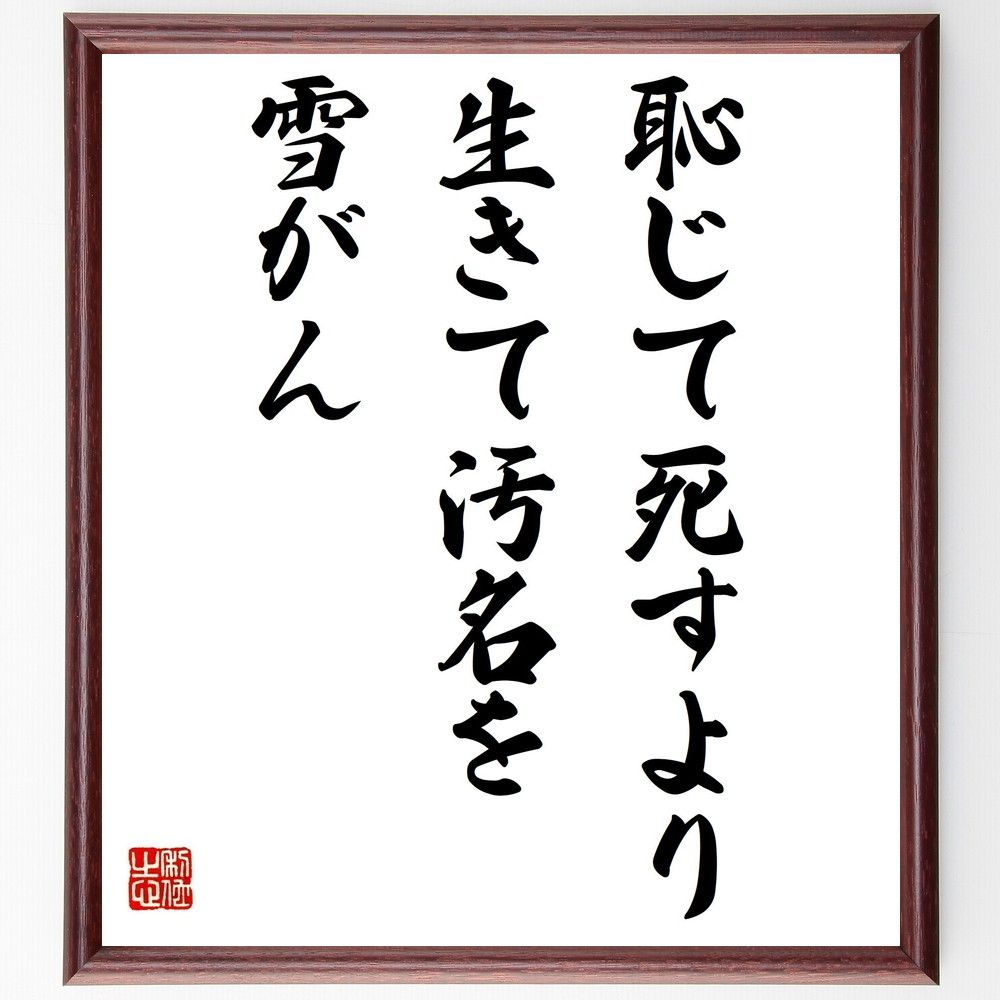 恥じて死すより
生きて汚名を
雪がん